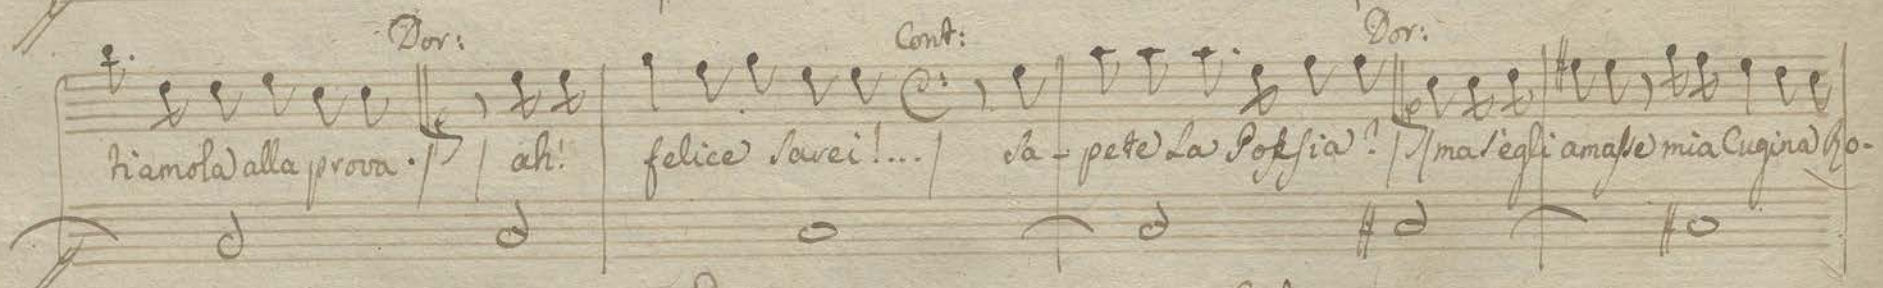 Dor: Cont: Dor:
tiamola alla prova . ah! felice sarei!... Sa-pete La Poesia? ma s'egli amasse mia Cugina Ro-